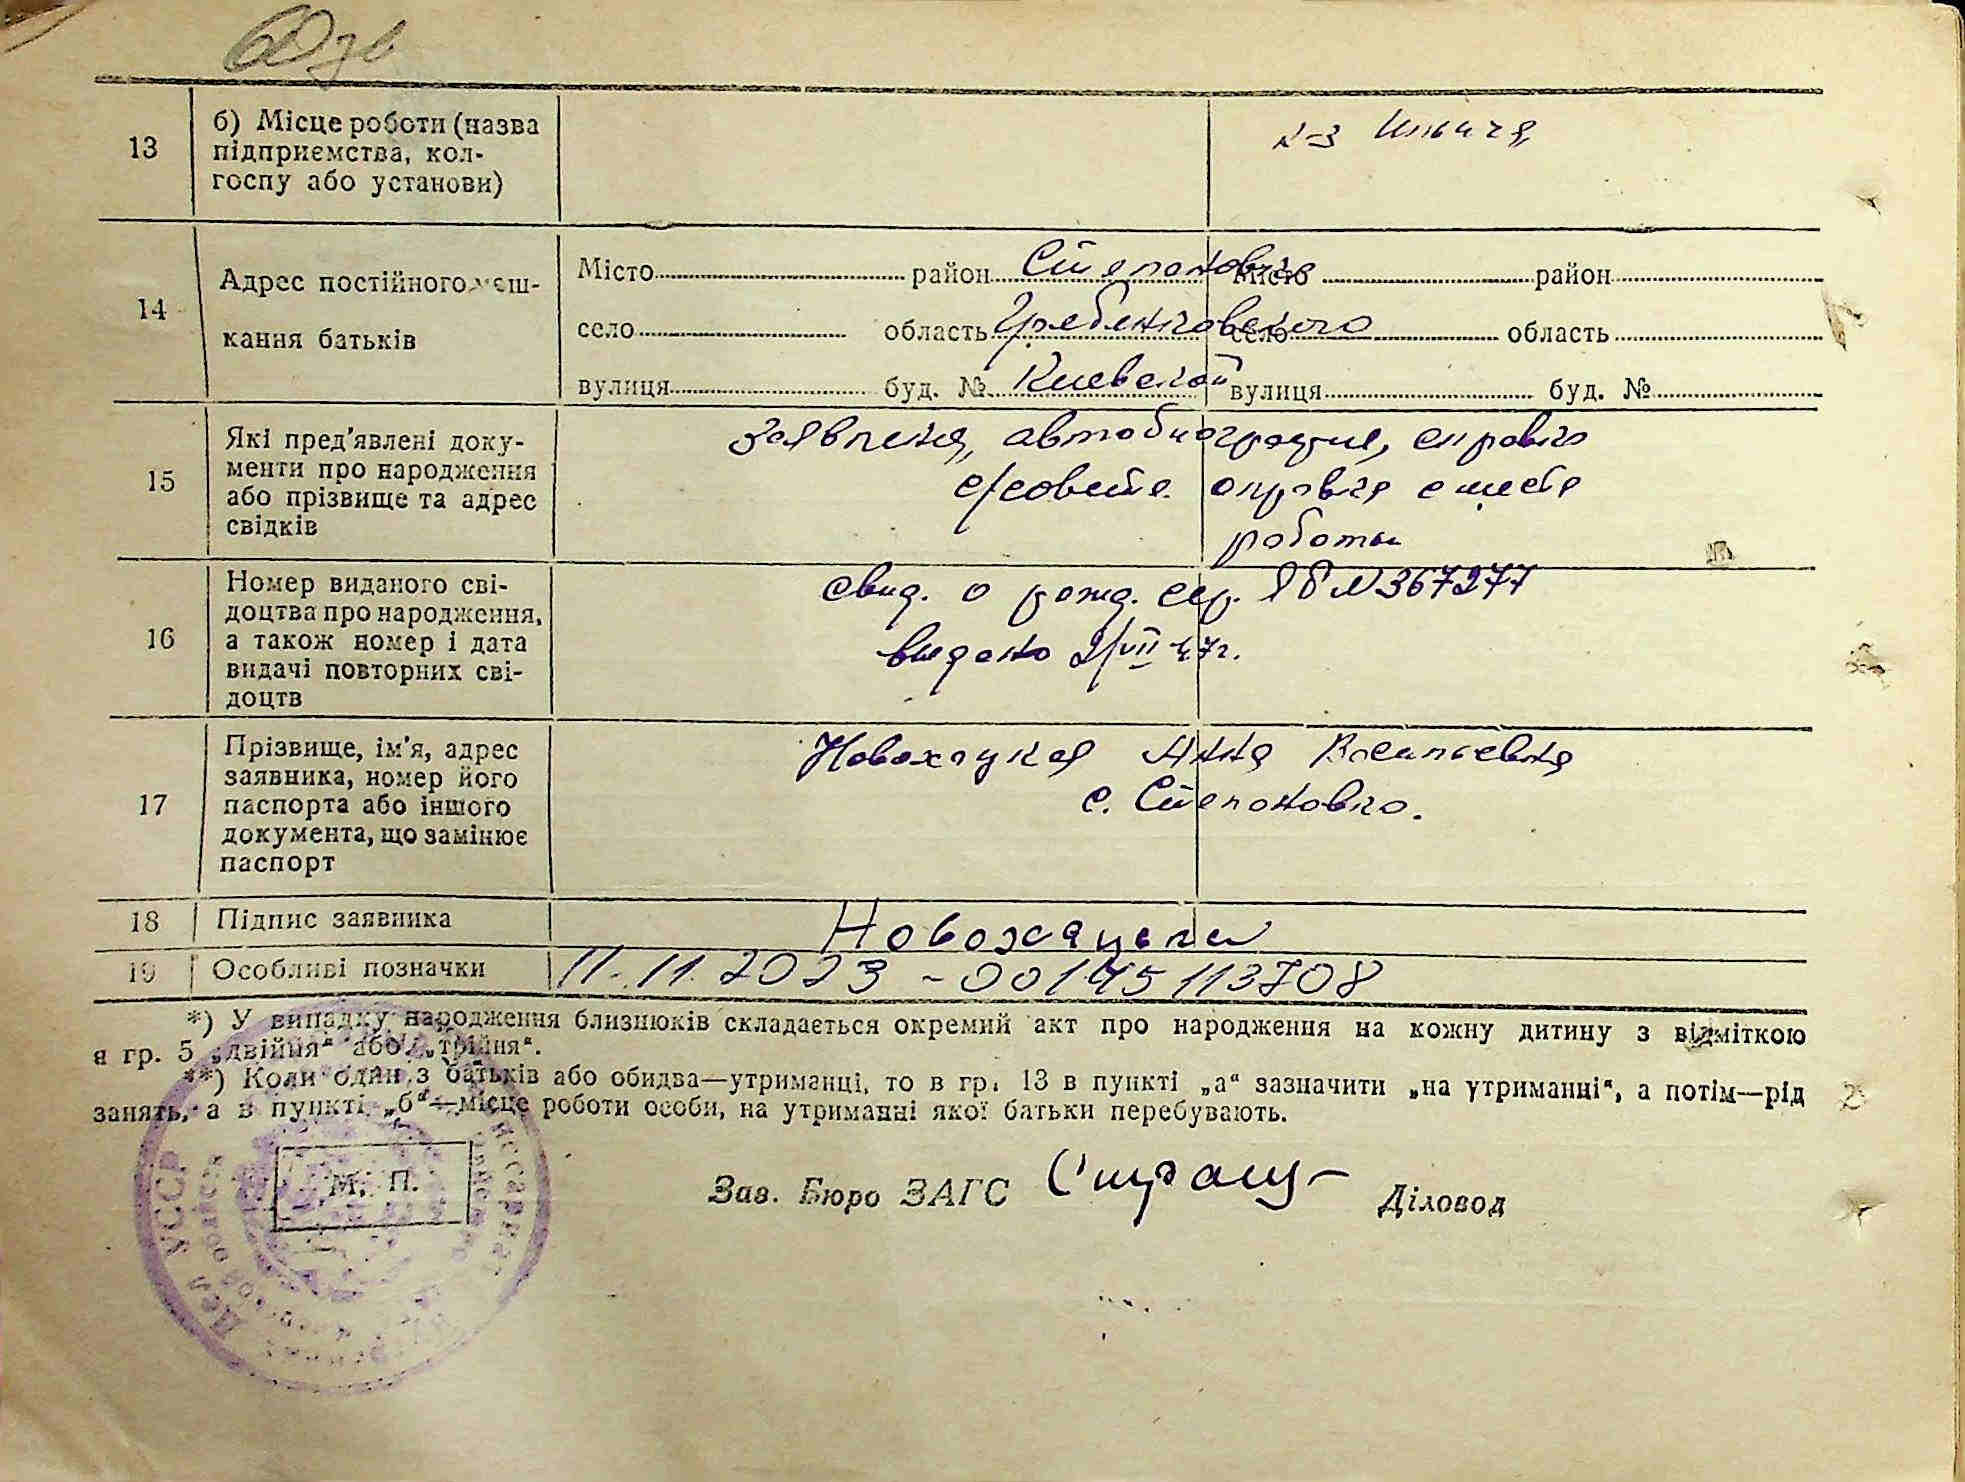 13
б) Місце роботи (назва
підприємства, кол-
госпу або установи)
к-з Ильича
14
Адрес постійного меш-
кання батьків
Місто район Степановка Місто район
село область Гребенковского село область
вулиця буд. № Киевской вулиця буд. №
15
Які пред'явлені доку-
менти про народження
або прізвище та адрес
свідків
заявления, автобиография, справка
с/совета справка с места
работы
16
Номер виданого сві-
доцтва про народження,
а також номер і дата
видачі повторних сві-
доцтв
свид. о рожд. сер. N 367277
выдано 2/VII 47г.
17
Прізвище, ім'я, адрес
заявника, номер його
паспорта або іншого
документа, що замінює
паспорт
Новохацкая Анна Васильевна
с. Степановка.
18 Підпис заявника
Новохацька
19 Особливі позначки 11.11.2023 - 00145113708
*) У випадку народження близнюків складається окремий акт про народження на кожну дитину з відміткою
в гр. 5 „двійня“ або „трійня“.
**) Коли один з батьків або обидва—утриманці, то в гр. 13 в пункті „а“ зазначити „на утриманні“, а потім—рід
занять, а в пункті „б“—місце роботи особи, на утриманні якої батьки перебувають.
М. П.
УССР
Зав. Бюро ЗАГС Діловод